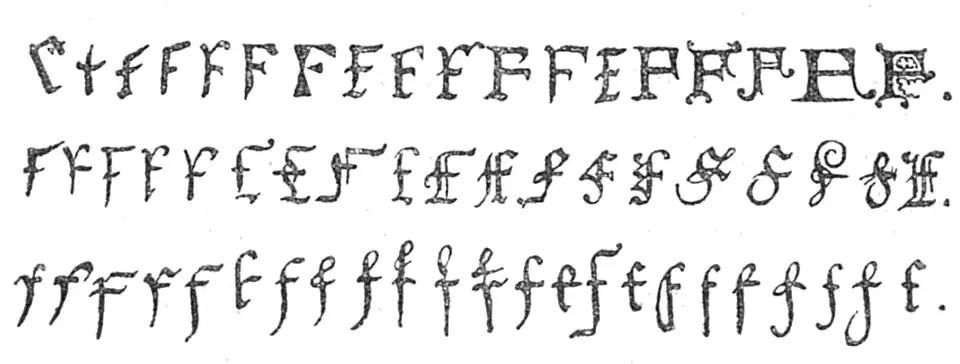 F F F F F F F F F F F F F F F F F F.
F F F F F F F F F F F F F F F F F F F.
f f f f f f f f f f f f f f f f f f f f f f f.